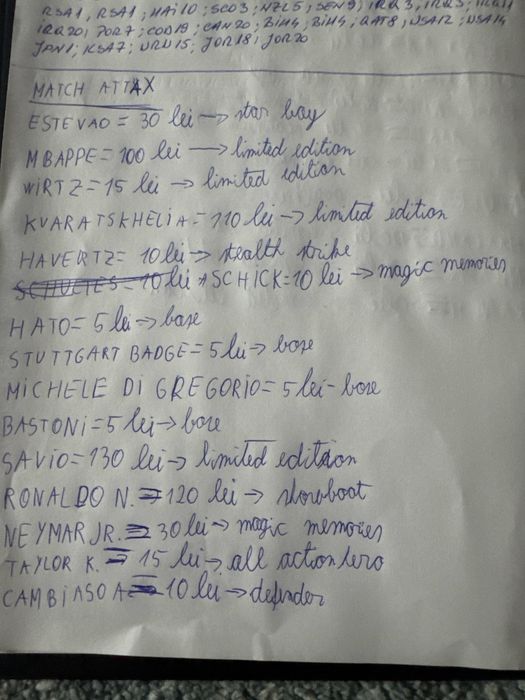 RSA1, RSA1; HAI10; SCO3; NZL5; SEN9; IRQ3; IRQ3;
IRQ20; POR7; COD18; CAN20; BIH4; BIH4; QAT8; USA12; USA14
JPN1; KSA7; URU15; JOR18; JOR20
MATCH ATTAX
ESTEVAO = 30 lei -> star boy
MBAPPE = 100 lei -> limited edition
WIRTZ = 15 lei -> limited edition
KVARATSKHELIA = 110 lei -> limited edition
HAVERTZ = 10 lei -> stealth strike
10 lei SCHICK = 10 lei -> magic memories
HATO = 5 lei -> base
STUTTGART BADGE = 5 lei -> base
MICHELE DI GREGORIO = 5 lei - base
BASTONI = 5 lei -> base
SAVIO = 130 lei -> limited edition
RONALDO N. = 120 lei -> showboot
NEYMAR JR. = 30 lei -> magic memories
TAYLOR K. = 15 lei -> all action
CAMBIASO A = 10 lei -> defender